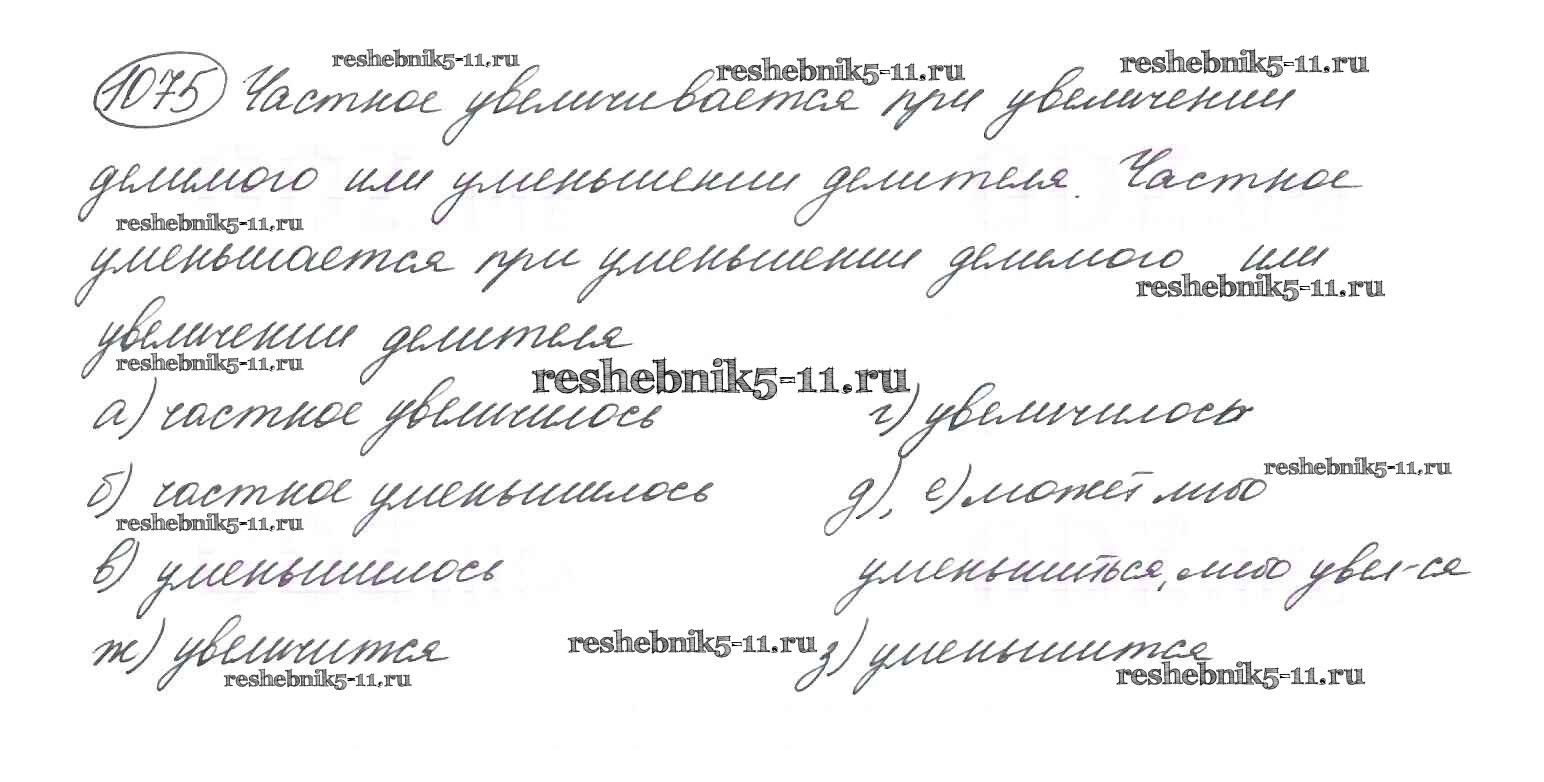 reshebnik5-11.ru reshebnik5-11.ru reshebnik5-11.ru
1075 Частное увеличивается при увеличении
делимого или уменьшении делителя. Частное
reshebnik5-11.ru
уменьшается при уменьшении делимого или
reshebnik5-11.ru
увеличении делителя
reshebnik5-11.ru reshebnik5-11.ru
а) частное увеличилось г) увеличилось
reshebnik5-11.ru
б) частное уменьшилось д), е) может либо
reshebnik5-11.ru
в) уменьшилось уменьшиться, либо увел-ся
ж) увеличится reshebnik5-11.ru з) уменьшится
reshebnik5-11.ru reshebnik5-11.ru